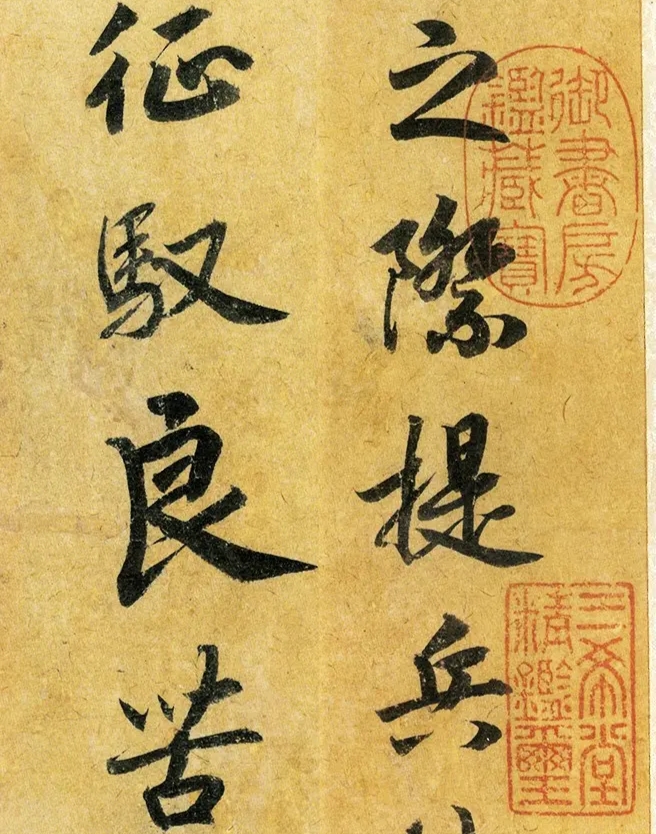 之際提兵
征馭良苦
御書房鑑藏寶
三希堂精鑑璽